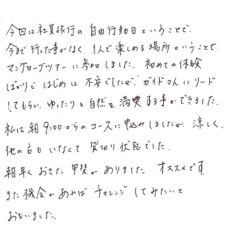 今回は社員旅行の自由行動日ということで、
今まで行った事がなく、1人で楽しめる場所ということで
マングローブツアーに参加しました。初めての体験
ばかりではじめは不安でしたが、ガイドさんにリード
してもらい、ゆったりと自然を満喫する事ができました。
私は朝9:00からのコースに申込みしましたが、涼しく、
他の方もいなくて貸切り状態でした。
朝早くおきた甲斐がありました。オススメです。
また機会があればチャレンジしてみたいと
おもいました。